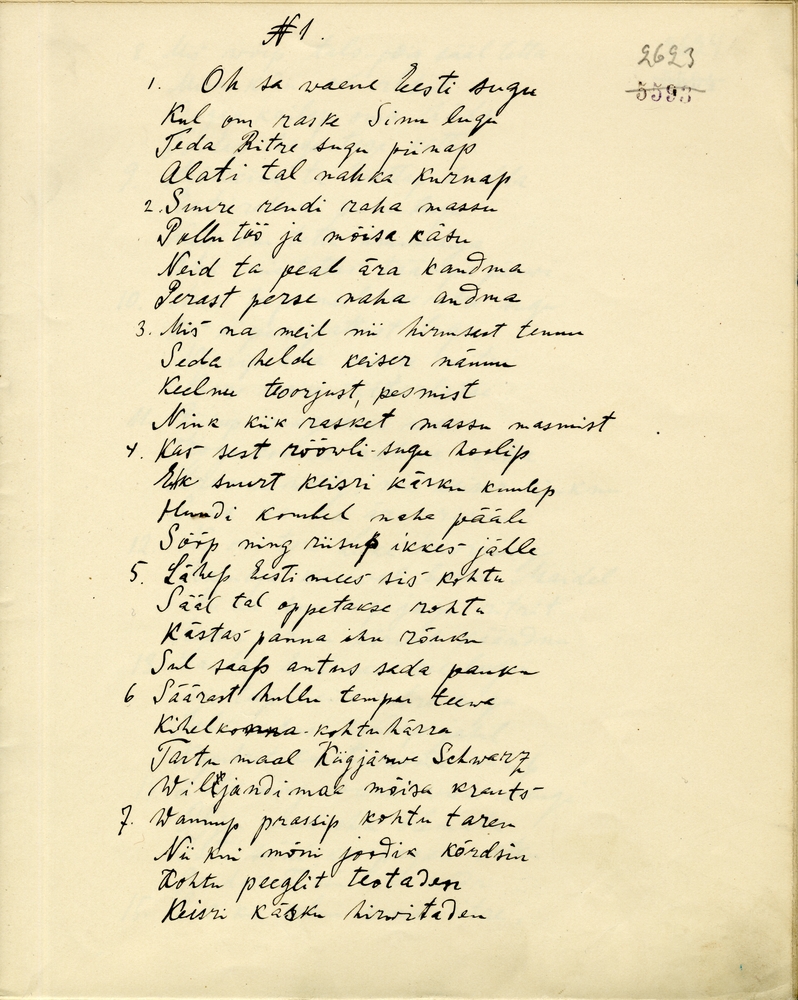 № 1.
2623
5593
1. Oh sa waene Eesti sugu
Kul om raske Sinu lugu
Teda Ritre sugu piinap
Alati tal nahka kurnap
2. Suure rendi raha massu
Põllu töö ja mõisa käsu
Neid ta peal ära kandma
Perast perse naha andma
3. Mis na meil nii hirmsast tennu
Seda helde keiser nännu
Keelnu teoorjust, pesmist
Nink kiik rasket massu masmist
4. Kas sest rööwli-sugu hoolip
Ehk suurt keisri käsku kuulep
Hundi kombel naha pääle
Sööp ning riisup ikkes jälle
5. Lähep Eesti mees sis kohtu
Sääl tal oppetakse rohtu
Kästas panna ihu rõuku
Sul saap antus sada pauku
6 Säärast hullu tempu teewa
Kihelkonna-kohtuhärra
Tartu maal Kiigjärwe Schwarz
Wiljandimaa mõisa krants
7. Wannup prassip kohtu taren
Nii kui mõni joodik kõrdsin
Kohtu peeglit teotaden
Keisri käsku hirwitaden